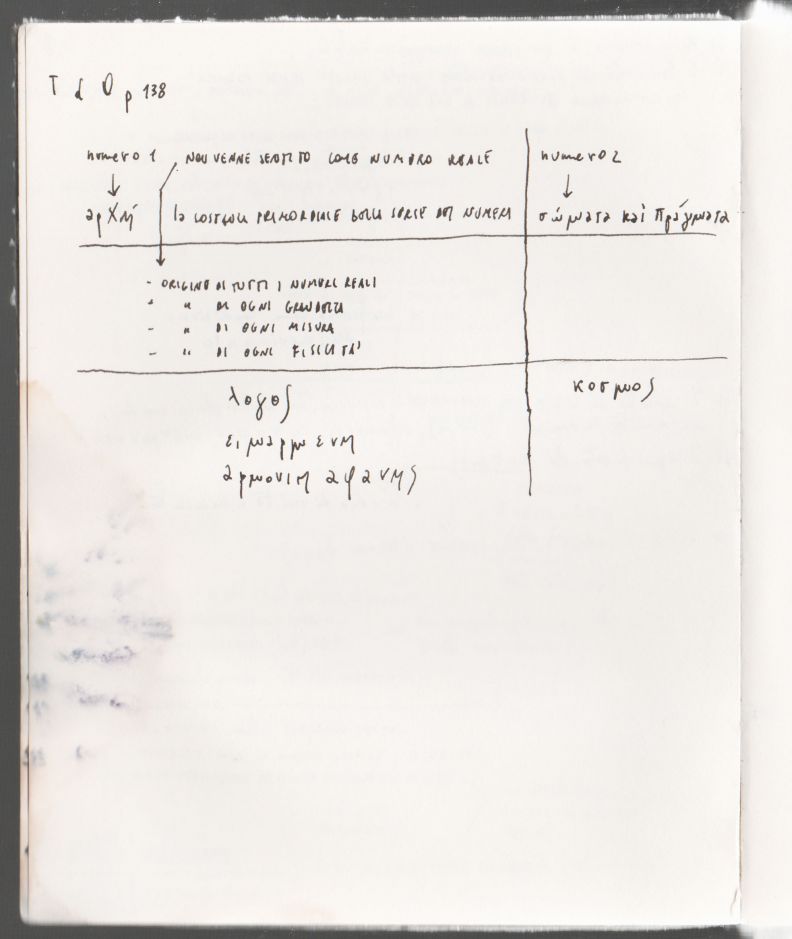 T d O p 138
numero 1 NON VENNE SENTITO COME NUMERO REALE numero 2
αρχή la COSTOLA PRIMORDIALE DELLA SERIE DEI NUMERI σώματα καὶ πράγματα
- ORIGINE DI TUTTI I NUMERI REALI
- " DI OGNI GRANDEZZA
- " DI OGNI MISURA
- " DI OGNI FISICITÀ
λογος κοσμος
ειμαρμενη
αρμονιη αφανης